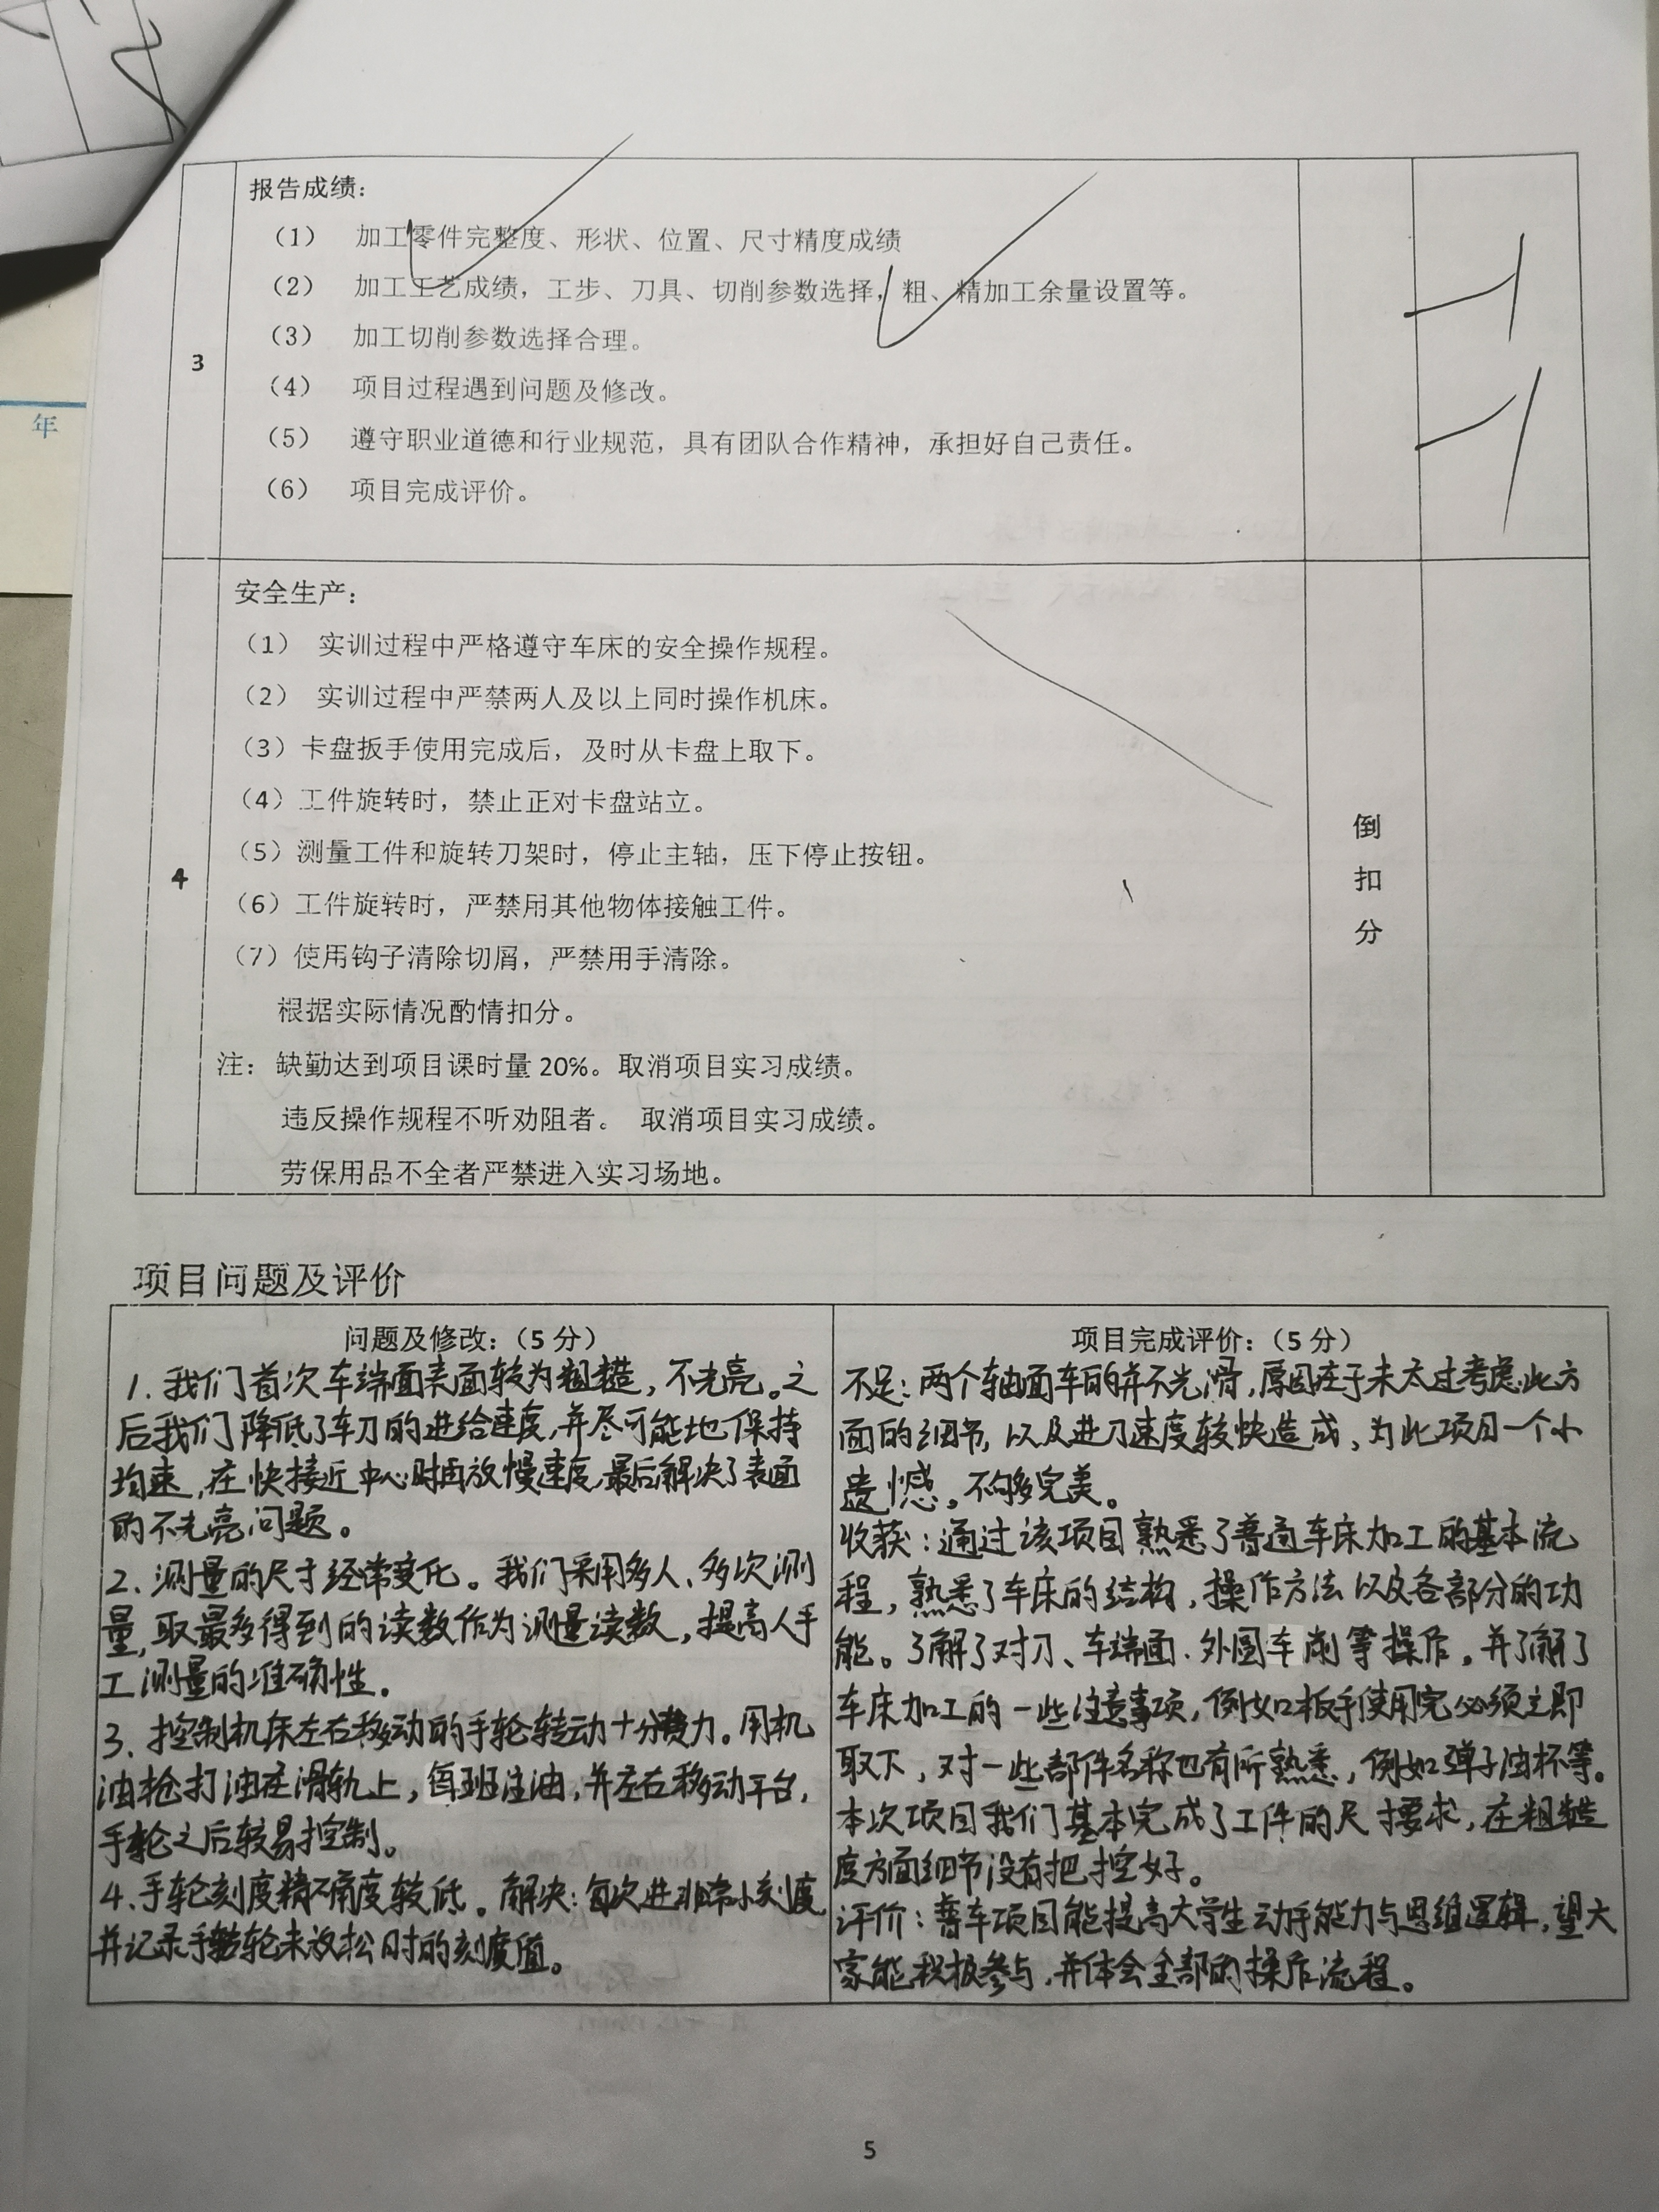 年
3
报告成绩：
（1） 加工零件完整度、形状、位置、尺寸精度成绩
（2） 加工工艺成绩，工步、刀具、切削参数选择，粗、精加工余量设置等。
（3） 加工切削参数选择合理。
（4） 项目过程遇到问题及修改。
（5） 遵守职业道德和行业规范，具有团队合作精神，承担好自己责任。
（6） 项目完成评价。
-1
-1
4
安全生产：
（1） 实训过程中严格遵守车床的安全操作规程。
（2） 实训过程中严禁两人及以上同时操作机床。
（3）卡盘扳手使用完成后，及时从卡盘上取下。
（4）工件旋转时，禁止正对卡盘站立。
（5）测量工件和旋转刀架时，停止主轴，压下停止按钮。
（6）工件旋转时，严禁用其他物体接触工件。
（7）使用钩子清除切屑，严禁用手清除。
根据实际情况酌情扣分。
注： 缺勤达到项目课时量 20%。取消项目实习成绩。
违反操作规程不听劝阻者。 取消项目实习成绩。
劳保用品不全者严禁进入实习场地。
倒
扣
分
项目问题及评价
问题及修改：（5 分）
1. 我们首次车端面表面较为粗糙，不光亮。之
后我们降低了车刀的进给速度，并尽可能地保持
均速，在快接近中心时再放慢速度，最后解决了表面
的不光亮问题。
2. 测量的尺寸经常变化。我们采用多人、多次测
量，取最多得到的读数作为测量读数，提高人手
工测量的准确性。
3. 控制机床左右移动的手轮转动十分费力。用机
油枪打油在滑轨上，每班注油，并左右移动平台，
手轮之后较易控制。
4. 手轮刻度精确度较低。解决：每次进非常小刻度
并记录手轮未放松时的刻度值。
项目完成评价：（5 分）
不足：两个轴面车的并不光滑，原因在于未太过考虑此方
面的细节，以及进刀速度较快造成、为此项目一个小
遗憾。不够完美。
收获：通过该项目熟悉了普通车床加工的基本流
程，熟悉了车床的结构，操作方法以及各部分的功
能。了解了对刀、车端面、外圆车削等操作。并了解了
车床加工的一些注意事项，例如扳手使用完必须立即
取下，对一些部件名称也有所熟悉，例如弹子油杯等。
本次项目我们基本完成了工件的尺寸要求，在粗糙
度方面细节没有把控好。
评价：普车项目能提高大学生动手能力与思维逻辑，望大
家能积极参与，并体会全部的操作流程。
5